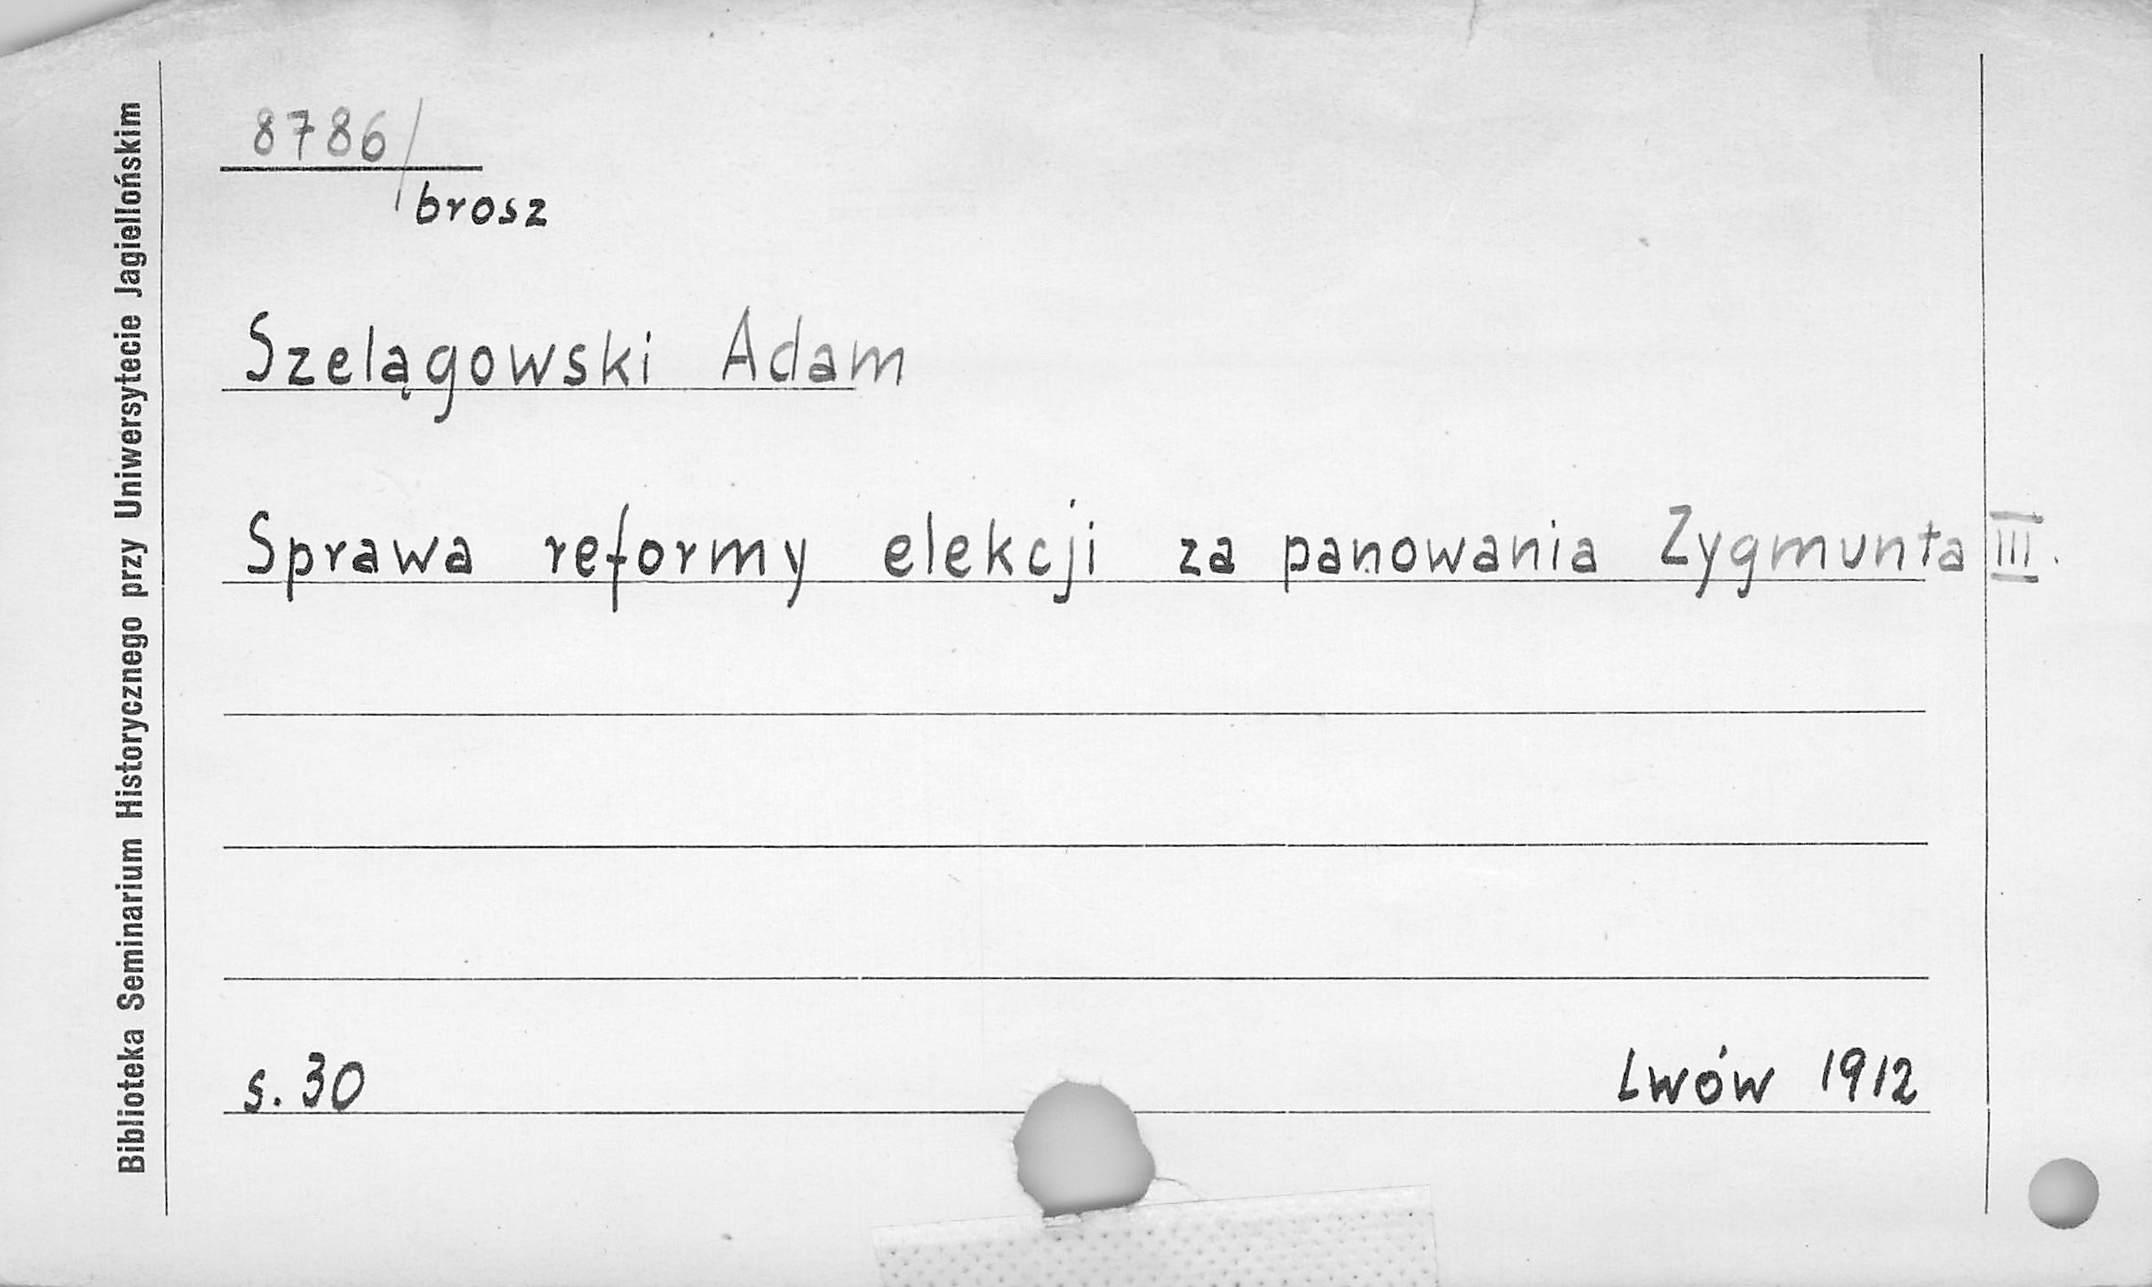 8786/
brosz
Szelągowski Adam
Sprawa reformy elekcji za panowania Zygmunta III.
s. 30 Lwów 1912
Biblioteka Seminarium Historycznego przy Uniwersytecie Jagiellońskim